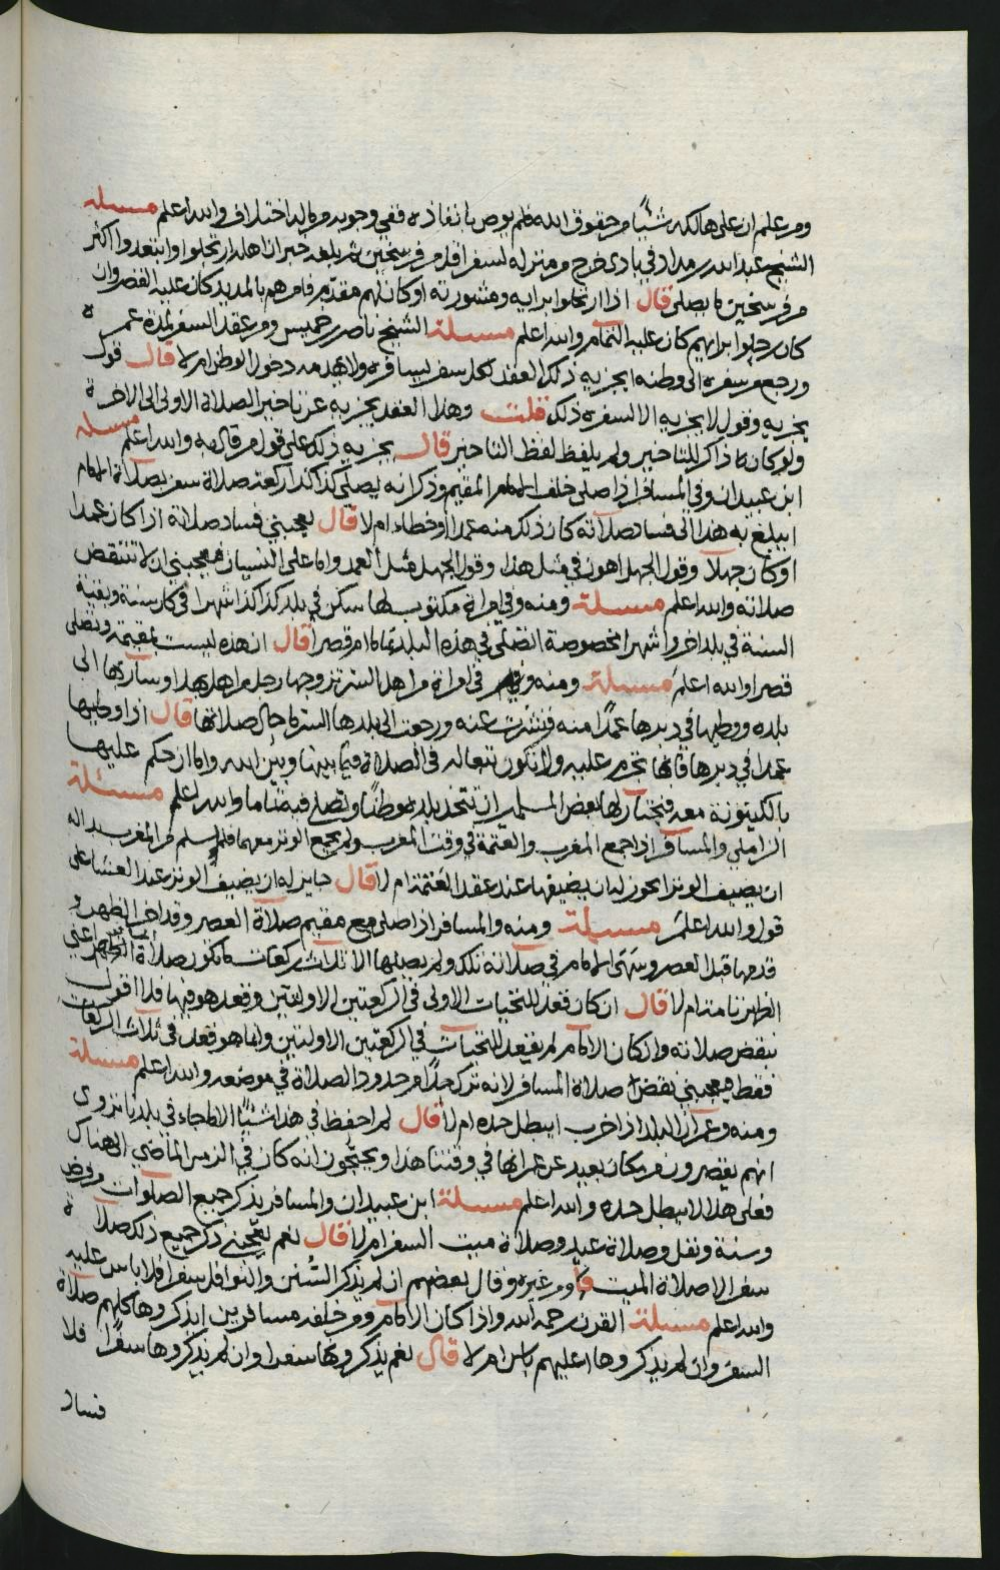 ومن علم ان على هالكه شيئاً من حقوق الله فلم يوص بانفاذه ففي وجوبه من ماله اختلاف والله اعلم مسئلة
الشيخ عبدالله بن مداد في بادي خرج من منزله لسفر اقل من فرسخين ثم بلغه خبر ان اهله ارتحلوا وابتعدوا اكثر
من فرسخين ما يصلي قال اذا ارتحلوا برايه ومشورته او كان لهم مقدم فامرهم بالمد يد كان عليه القصر وان
كان رحلوا برايهم كان عليه التمام والله اعلم مسئلة الشيخ ناصر بن خميس ومن عقد السفر لمدة عمره
ورجع من سفره الى وطنه ايجزيه ذلك العقد لكل سفر يسافره ولا يهدمه دخول الوطن ام لا قال قول
يجزيه وقول لا يجزيه الا لسفره ذلك قلت وهذا العقد يجزيه عن تاخير الصلاة الاولى الى الاخرة
ولو كان ذاكر للتاخير ولم يلفظ لفظ التاخير قال يجزيه ذلك على قول من قال به والله اعلم مسئلة
ابن عبيدان وفي المسافر اذا صلى خلف الامام المقيم وذكر انه يصلي كذا كذا ركعة صلاة سفر بصلاة الامام
ايبلغ به هذا الى فساد صلاته كان ذلك منه عمدا او خطاء ام لا قال يعجبني فساد صلاته اذا كان عمدا
او كان جهلا وقول الجهل اهون في مثل هذا وقول الجهل مثل العمد واما على النسيان فيعجبني ان لا تنتقض
صلاته والله اعلم مسئلة ومنه وفي امراة مكتوب لها سكن في بلد كذا كذا شهرا في كل سنة وبقية
السنة في بلد اخر واشهرا مخصوصة اتصلي في هذه البلد تماما ام قصرا قال ان هذه ليست بمقيمة وتصلي
قصرا والله اعلم مسئلة ومنه وفي امراة من اهل السر تزوجها رجل من اهل بهلا وسار بها الى
بلده ووطيها في دبرها عمدا منه فنشزت عنه ورجعت الى بلدها السر ما حال صلاتها قال اذا وطيها
عمدا في دبرها فانها تحرم عليه ولا تكون تبعا له في الصلاة فيما بينها وبين الله واما ان حكم عليها
بالكينونة معه فيختار لها بعض المسلمين ان تتخذ بلده وطنا وتصلي فيه تماما والله اعلم مسئلة
الزاملي والمسافر اذا جمع المغرب والعتمة في وقت المغرب ولم يجمع الوتر معهما فلما سلم من المغرب بدا له
ان يضيف الوتر ايجوز له ان يضيفها عند عقد العتمة ام لا قال جايز له ان يضيف الوتر عند العشا على
قول والله اعلم مسئلة ومنه والمسافر اذا صلى مع مقيم صلاة العصر وقد اخر الظهر و
قدمها قبل العصر وسهى الامام في صلاته تلك ولم يصلها الا ثلاث ركعات ما تكون صلاة الظهر اعني
الظهر تامة ام لا قال ان كان قعد للتحيات الاولى في الركعتين الاولتين وقعد هو فيها فلا اقول
بنقض صلاته وان كان الامام لم يقعد للتحيات في الركعتين الاولتين وانما هو قعد في ثلاث الركعات
فقط فيعجبني نقض صلاة المسافر لانه ترك حدا من حدود الصلاة في موضعه والله اعلم مسئلة
ومنه وعمران البلد اذا خرب ايبطل حده ام لا قال لم احفظ في هذا شيئا الا ما جاء في بلدنا نزوى
انهم يقصرون من مكان بعيد عن عمرانها في وقتنا هذا ويحتجون انه كان في الزمن الماضي الى هناك
فعلى هذا لا يبطل حده والله اعلم مسئلة ابن عبيدان والمسافر يذكر جميع الصلوات من فرض
وسنة ونفل وصلاة عيد وصلاة ميت السفر ام لا قال نعم يعجبني ذكر جميع ذلك صلاة
سفر الا صلاة الميت ومن غيره وقال بعضهم ان لم يذكر السنن والنوافل سفرا فلا باس عليه
والله اعلم مسئلة القرن رحمه الله واذا كان الامام ومن خلفه مسافرين ايذكروها كلهم صلاة
السفر وان لم يذكروها اعليهم باس ام لا قال نعم يذكروها سفرا وان لم يذكروها سفرا فلا
فساد